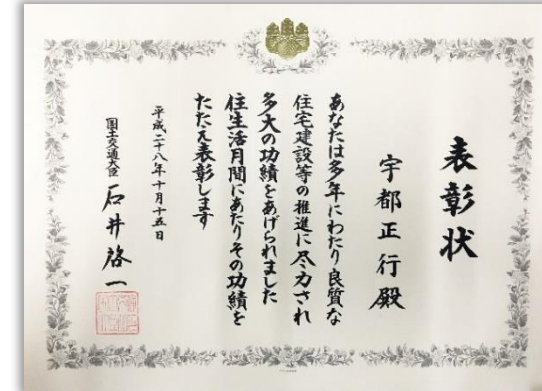 表彰状
宇都正行殿
あなたは多年にわたり良質な
住宅建設等の推進に尽力され
多大の功績をあげられました
住生活月間にあたりその功績を
たたえ表彰します
平成二十八年十月十五日
国土交通大臣 石井啓一